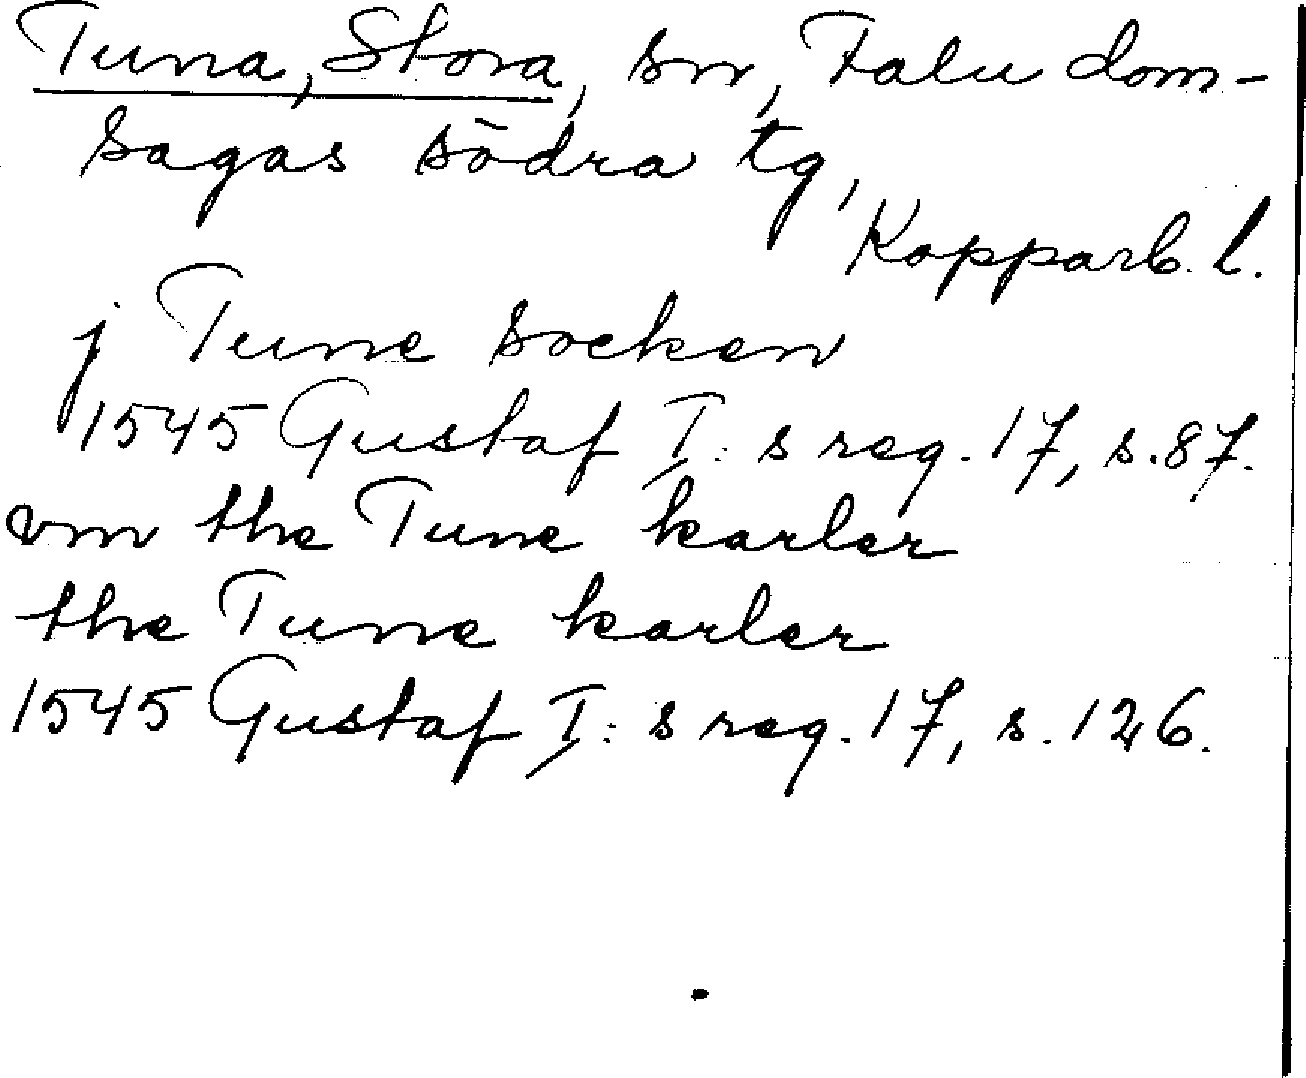 Tuna, Stora, sn, Falu dom-
sagas södra tg,
Kopparb. l.
j Tune socken
1545 Gustaf I: s reg. 17, s. 87.
vm the Tune karler
the Tune karler
1545 Gustaf I: s reg. 17, s. 126.